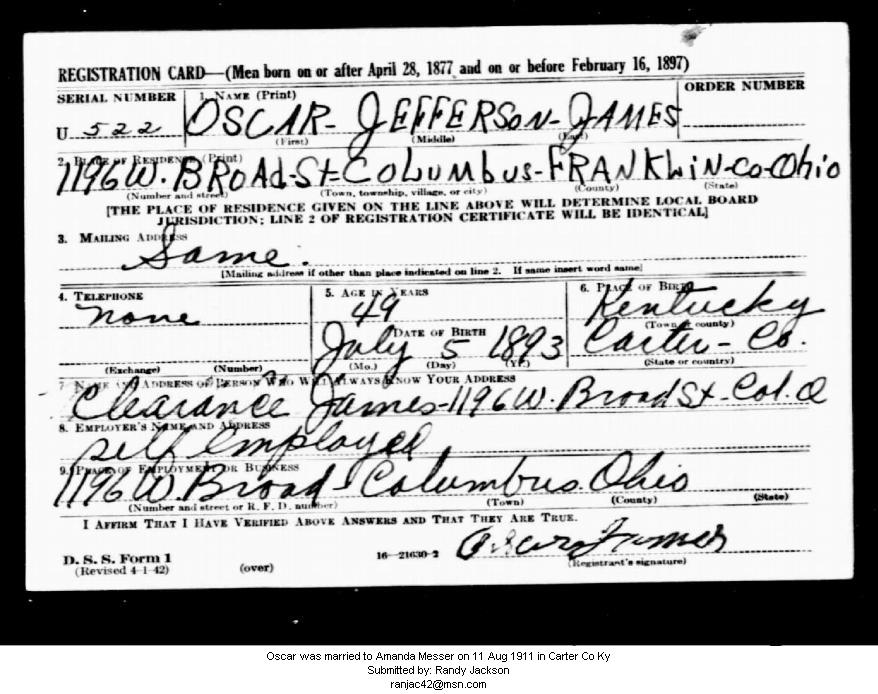 REGISTRATION CARD—(Men born on or after April 28, 1877 and on or before February 16, 1897)
SERIAL NUMBER 1. NAME (Print) ORDER NUMBER
U 522 OSCAR- JEFFERSON- JAMES
(First) (Middle) (Last)
2. PLACE OF RESIDENCE (Print)
1196 W. BROAd-St-COLUMbus-FRANKLiN-Co-Ohio
(Number and street) (Town, township, village, or city) (County) (State)
[THE PLACE OF RESIDENCE GIVEN ON THE LINE ABOVE WILL DETERMINE LOCAL BOARD
JURISDICTION; LINE 2 OF REGISTRATION CERTIFICATE WILL BE IDENTICAL]
3. MAILING ADDRESS
Same.
[Mailing address if other than place indicated on line 2. If same insert word same]
4. TELEPHONE 5. AGE IN YEARS 6. PLACE OF BIRTH
none 49 Kentucky
DATE OF BIRTH (Town or county)
July 5 1893 Carter- Co.
(Exchange) (Number) (Mo.) (Day) (Yr.) (State or country)
7. NAME AND ADDRESS OF PERSON WHO WILL ALWAYS KNOW YOUR ADDRESS
Clearance James-1196 W. Broad St-Col. O
8. EMPLOYER'S NAME AND ADDRESS
self employed
9. PLACE OF EMPLOYMENT OR BUSINESS
1196 W. Broad Columbus. Ohio
(Number and street or R. F. D. number) (Town) (County) (State)
I AFFIRM THAT I HAVE VERIFIED ABOVE ANSWERS AND THAT THEY ARE TRUE.
D. S. S. Form 1 16—21630-2 Oscar James
(Revised 4-1-42) (over) (Registrant's signature)
Oscar was married to Amanda Messer on 11 Aug 1911 in Carter Co Ky
Submitted by: Randy Jackson
ranjac42@msn.com